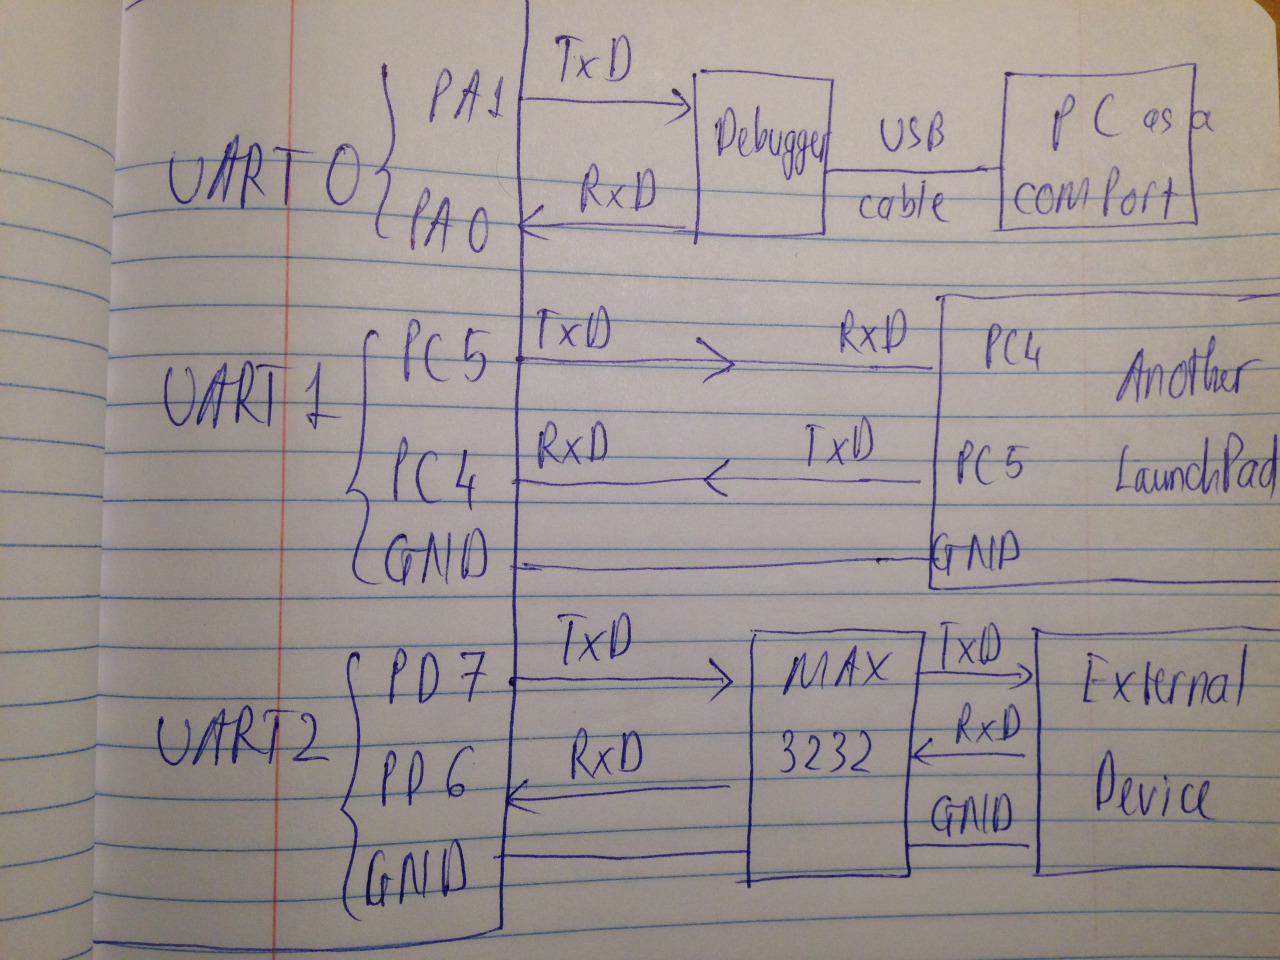 UART 0
PA1
PA0
TxD
RxD
Debugger
USB
cable
PC as a
com Port
UART 1
PC5
PC4
GND
TxD
RxD
RxD
TxD
PC4
PC5
GND
Another
LaunchPad
UART2
PD7
PD6
GND
TxD
RxD
MAX
3232
TxD
RxD
GND
External
Device